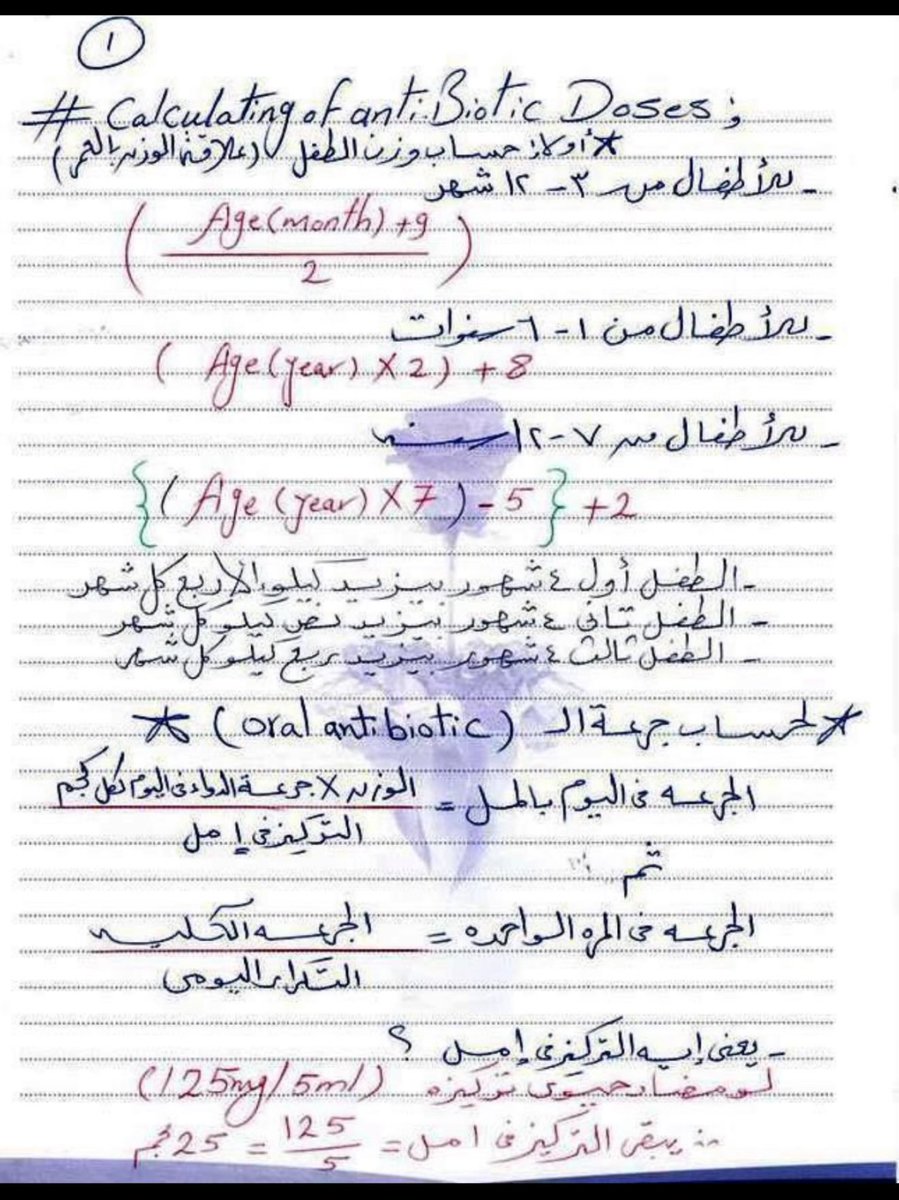 ١
# Calculating of antiBiotic Doses ;
* أولاً: حساب وزن الطفل (علاقة الوزن بالعمر)
- للأطفال من ٣ - ١٢ شهر
( Age(month) +9 / 2 )
- للأطفال من ١ - ٦ سنوات
( Age(year) X 2) + 8
- للأطفال من ٧ - ١٢ سنه
{( Age (year) X 7 ) - 5 } + 2
- الطفل أول ٤ شهور بيزيد كيلو إلا ربع كل شهر
- الطفل تانى ٤ شهور بيزيد نص كيلو كل شهر
- الطفل ثالث ٤ شهور بيزيد ربع كيلو كل شهر
* لحساب جرعة الـ (oral antibiotic) *
الجرعه فى اليوم بالمل = الوزن X جرعة الدواء فى اليوم لكل كجم / التركيز فى ١ مل
ثم
الجرعه فى المره الواحده = الجرعه الكليه / التكرار اليومى
- يعنى إيه التركيز فى ١ مل ؟
لو مضاد حيوى تركيزه (125mg/5ml)
∴ يبقى التركيز فى ١ مل = 125 / 5 = 25 مجم